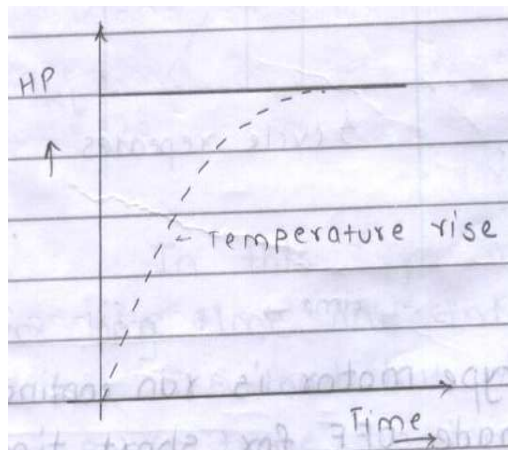 HP
Temperature rise
Time